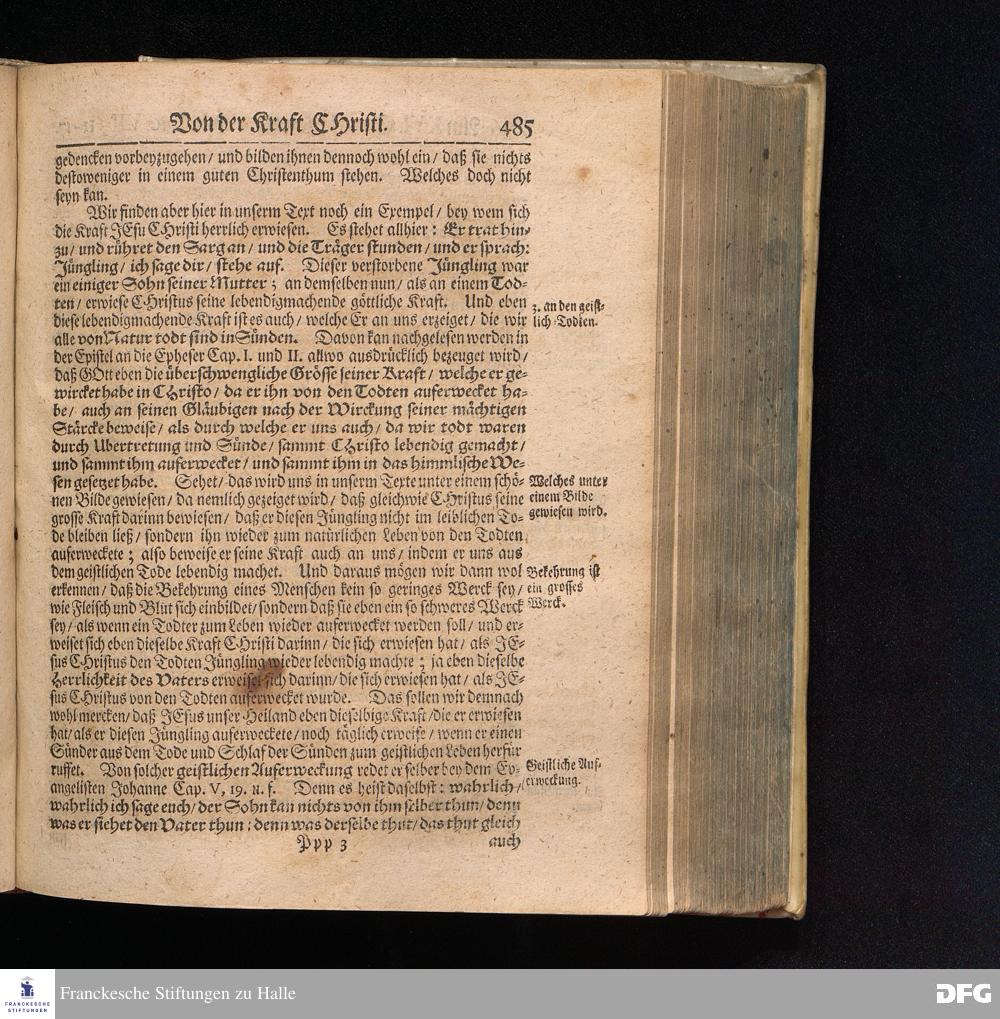 Von der Kraft CHristi. 485
gedencken vorbeyzugehen / und bilden ihnen dennoch wohl ein / daß sie nichts
destoweniger in einem guten Christenthum stehen. Welches doch nicht
seyn kan.
Wir finden aber hier in unserm Text noch ein Exempel / bey wem sich
die Kraft JEsu CHristi herrlich erwiesen. Es stehet allhier: Er trat hin-
zu / und rühret den Sarg an / und die Träger stunden / und er sprach:
Jüngling / ich sage dir / stehe auf. Dieser verstorbene Jüngling war
ein einiger Sohn seiner Mutter; an demselben nun / als an einem Tod-
ten / erwiese CHristus seine lebendigmachende göttliche Kraft. Und eben
diese lebendigmachende Kraft ist es auch / welche Er an uns erzeiget / die wir
alle von Natur todt sind in Sünden. Davon kan nachgelesen werden in
der Epistel an die Epheser Cap. I. und II. allwo ausdrücklich bezeuget wird /
daß GOtt eben die überschwengliche Grösse seiner Kraft / welche er ge-
wircket habe in CHristo / da er ihn von den Todten auferwecket ha-
be / auch an seinen Gläubigen nach der Wirckung seiner mächtigen
Stärcke beweise / als durch welche er uns auch / da wir todt waren
durch Ubertretung und Sünde / sammt CHristo lebendig gemacht /
und sammt ihm auferwecket / und sammt ihm in das himmlische We-
sen gesetzet habe. Sehet / das wird uns in unserm Texte unter einem schö-
nen Bilde gewiesen / da nemlich gezeiget wird / daß gleichwie CHristus seine
grosse Kraft darinn bewiesen / daß er diesen Jüngling nicht im leiblichen To-
de bleiben ließ / sondern ihn wieder zum natürlichen Leben von den Todten
auferweckete; also beweise er seine Kraft auch an uns / indem er uns aus
dem geistlichen Tode lebendig machet. Und daraus mögen wir dann wol
erkennen / daß die Bekehrung eines Menschen kein so geringes Werck sey /
wie Fleisch und Blut sich einbildet / sondern daß sie eben ein so schweres Werck
sey / als wenn ein Todter zum Leben wieder auferwecket werden soll / und er-
weiset sich eben dieselbe Kraft CHristi darinn / die sich erwiesen hat / als JE-
sus CHristus den Todten Jüngling wieder lebendig machte; ja eben dieselbe
Herrlichkeit des Vaters erweiset sich darinn / die sich erwiesen hat / als JE-
sus CHristus von den Todten auferwecket wurde. Das sollen wir demnach
wohl mercken / daß JEsus unser Heiland eben dieselbige Kraft / die er erwiesen
hat / als er diesen Jüngling auferweckete / noch täglich erweise / wenn er einen
Sünder aus dem Tode und Schlaf der Sünden zum geistlichen Leben herfür
ruffet. Von solcher geistlichen Auferweckung redet er selber bey dem Ev-
angelisten Johanne Cap. V, 19. u. f. Denn es heist daselbst: wahrlich /
wahrlich ich sage euch / der Sohn kan nichts von ihm selber thun / denn
was er siehet den Vater thun: denn was derselbe thut / das thut gleich
Ppp 3 auch
3. an den geist-
lich Todten.
Welches unter
einem Bilde
gewiesen wird.
Bekehrung ist
ein grosses
Werck.
Geistliche Auf-
erweckung.
FRANCKESCHE
STIFTUNGEN
Franckesche Stiftungen zu Halle
DFG